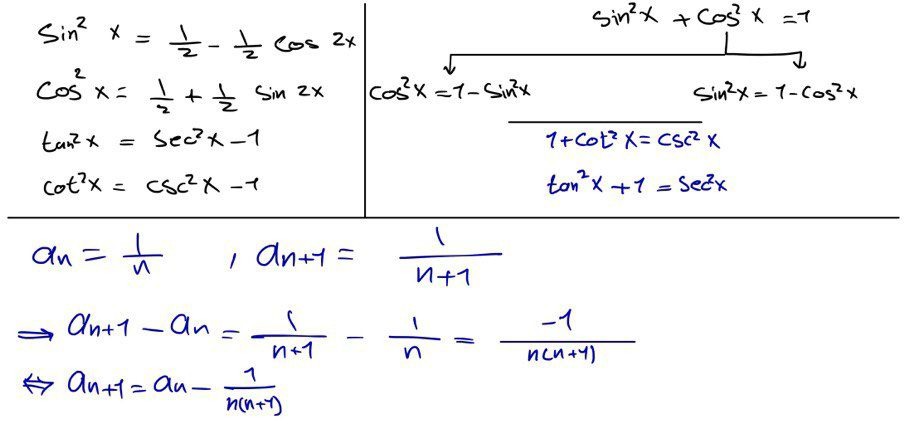 Sin² x = 1/2 - 1/2 Cos 2x
Cos² x = 1/2 + 1/2 Sin 2x
tan² x = Sec² x - 1
cot² x = csc² x - 1
Sin² x + Cos² x = 1
Cos² x = 1 - Sin² x
Sin² x = 1 - Cos² x
1 + Cot² x = CSC² x
tan² x + 1 = Sec² x
an = 1/n , an+1 = 1/(n+1)
⇒ an+1 - an = 1/(n+1) - 1/n = -1/(n(n+1))
⇔ an+1 = an - 1/(n(n+1))